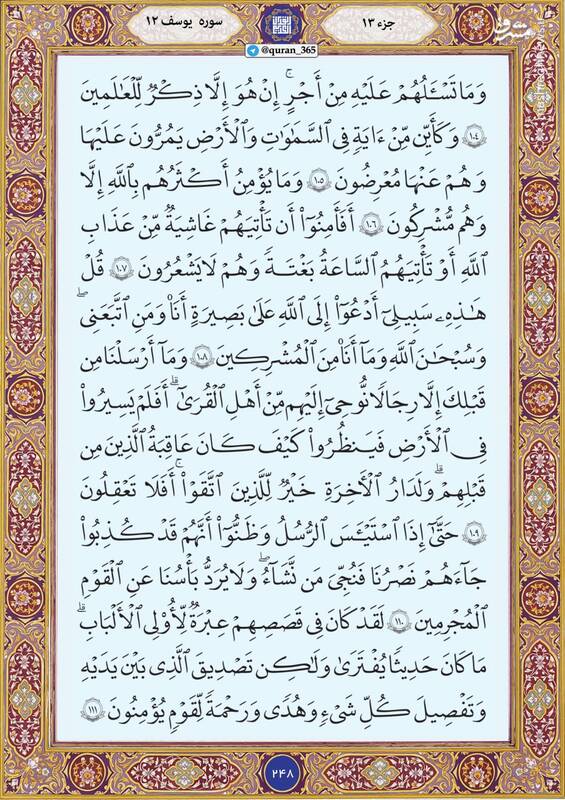 سوره یوسف ۱۲
جزء ۱۳
مشرق
@quran_365
وَمَا تَسْـَٔلُهُمْ عَلَيْهِ مِنْ أَجْرٍ ۚ إِنْ هُوَ إِلَّا ذِكْرٌ لِّلْعَٰلَمِينَ
۱۰۴ وَكَأَيِّن مِّنْ ءَايَةٍ فِى ٱلسَّمَٰوَٰتِ وَٱلْأَرْضِ يَمُرُّونَ عَلَيْهَا
وَهُمْ عَنْهَا مُعْرِضُونَ ۱۰۵ وَمَا يُؤْمِنُ أَكْثَرُهُم بِٱللَّهِ إِلَّا
وَهُم مُّشْرِكُونَ ۱۰۶ أَفَأَمِنُوٓا۟ أَن تَأْتِيَهُمْ غَٰشِيَةٌ مِّنْ عَذَابِ
ٱللَّهِ أَوْ تَأْتِيَهُمُ ٱلسَّاعَةُ بَغْتَةً وَهُمْ لَا يَشْعُرُونَ ۱۰۷ قُلْ
هَٰذِهِۦ سَبِيلِىٓ أَدْعُوٓا۟ إِلَى ٱللَّهِ عَلَىٰ بَصِيرَةٍ أَنَا۠ وَمَنِ ٱتَّبَعَنِى ۖ
وَسُبْحَٰنَ ٱللَّهِ وَمَآ أَنَا۠ مِنَ ٱلْمُشْرِكِينَ ۱۰۸ وَمَآ أَرْسَلْنَا مِن
قَبْلِكَ إِلَّا رِجَالًا نُّوحِىٓ إِلَيْهِم مِّنْ أَهْلِ ٱلْقُرَىٰٓ ۗ أَفَلَمْ يَسِيرُوا۟
فِى ٱلْأَرْضِ فَيَنظُرُوا۟ كَيْفَ كَانَ عَٰقِبَةُ ٱلَّذِينَ مِن
قَبْلِهِمْ ۗ وَلَدَارُ ٱلْأَخِرَةِ خَيْرٌ لِّلَّذِينَ ٱتَّقَوْا۟ ۗ أَفَلَا تَعْقِلُونَ
۱۰۹ حَتَّىٰٓ إِذَا ٱسْتَيْـَٔسَ ٱلرُّسُلُ وَظَنُّوٓا۟ أَنَّهُمْ قَدْ كُذِبُوا۟
جَآءَهُمْ نَصْرُنَا فَنُجِّىَ مَن نَّشَآءُ ۖ وَلَا يُرَدُّ بَأْسُنَا عَنِ ٱلْقَوْمِ
ٱلْمُجْرِمِينَ ۱۱۰ لَقَدْ كَانَ فِى قَصَصِهِمْ عِبْرَةٌ لِّأُو۟لِى ٱلْأَلْبَٰبِ ۗ
مَا كَانَ حَدِيثًا يُفْتَرَىٰ وَلَٰكِن تَصْدِيقَ ٱلَّذِى بَيْنَ يَدَيْهِ
وَتَفْصِيلَ كُلِّ شَىْءٍ وَهُدًى وَرَحْمَةً لِّقَوْمٍ يُؤْمِنُونَ ۱۱۱
۲۴۸